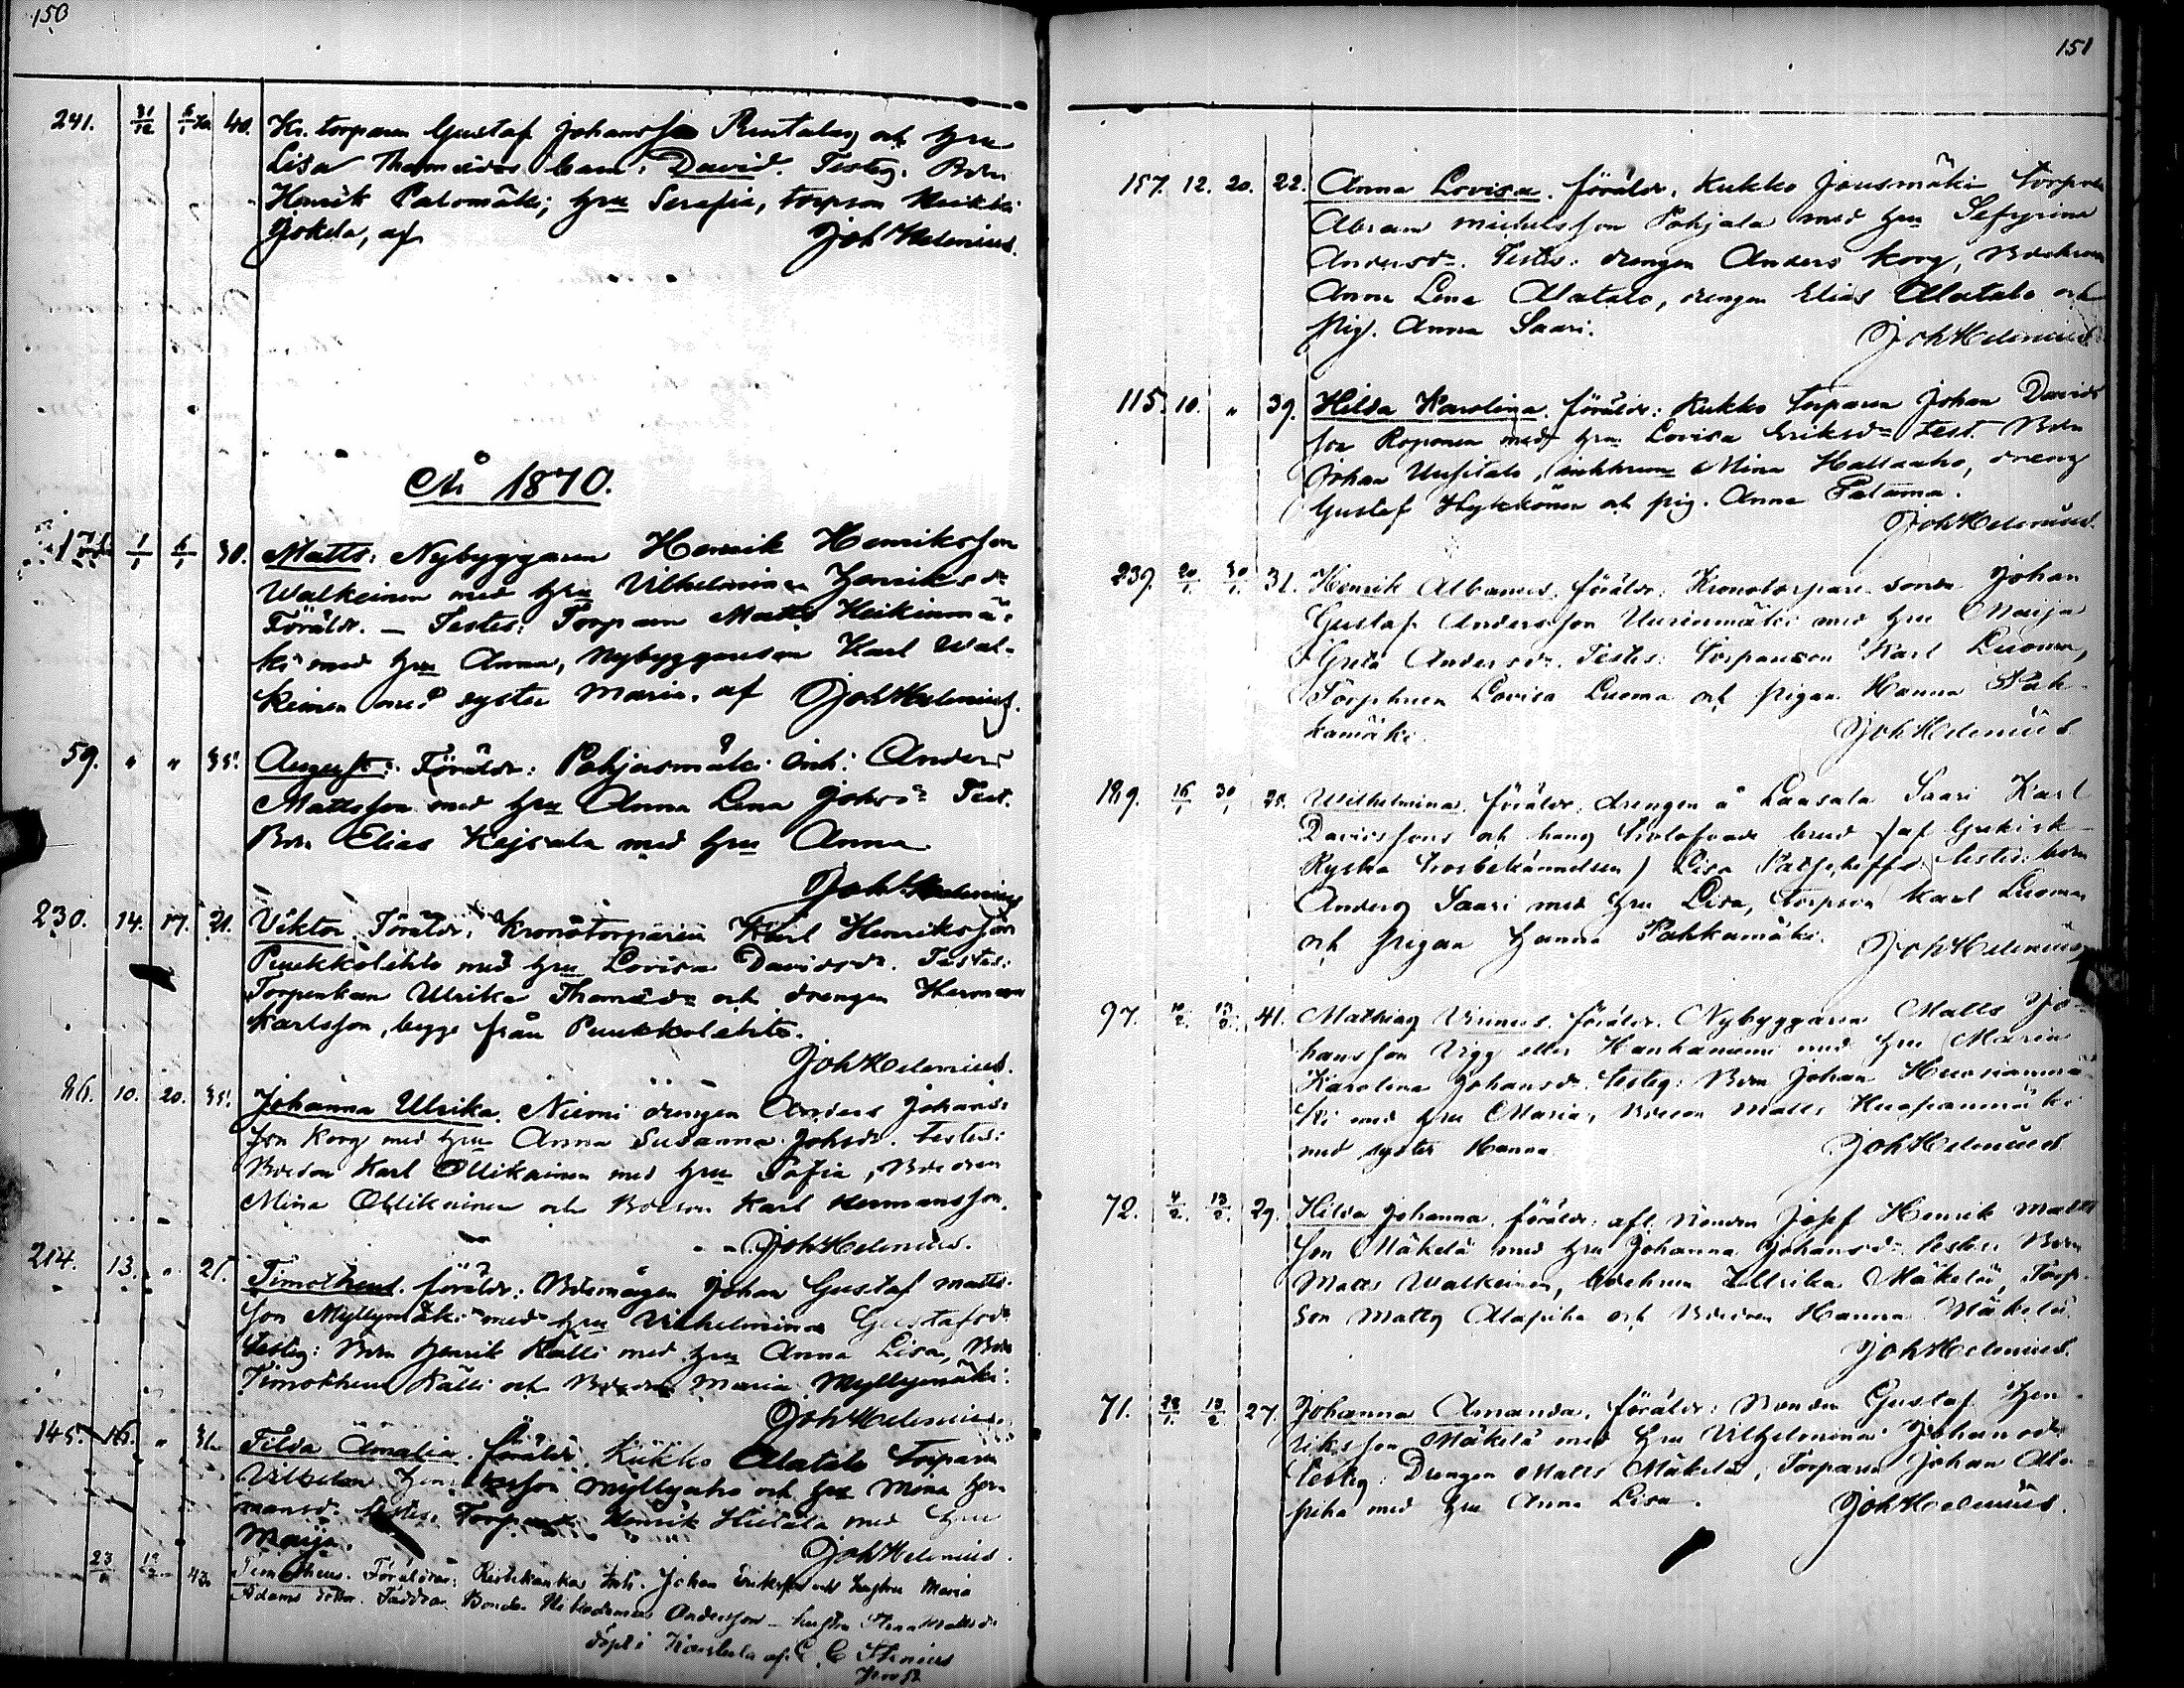 150
241. 31/12 6/1 70 40. Kr. torparen Gustaf Johansson Rintala och hru
Lisa Thomasdr barn: David. Testes. Bdn
Henrik Palomäki, hru Serafia, torpson Heikki
Jokela, af Joh Helenius.
År 1870.
1/1 6/1 30. Matts: Nybyggaren Henrik Henriksson
Walkeinen med hru Vilhelmina Henriksdr
Föräldr. — Testes: Torparen Matts Heikinmä-
ki med hru Anna, Nybyggareson Karl Wal-
keinen med syster Maria. af Joh Helenius.
59. " " 35. August: Föräldr: Pohjasmäki Inh: Anders
Mattsson med hru Anna Lena Johsdr Test.
Bdn Elias Kejsala med hru Anna
Joh Helenius
230. 14. 17. 21. Viktor. Föräldr: Kronotorparen Karl Henriksson
Puukkolehto med hru Lovisa Davidsdr. Testes:
Torpenkan Ulrika Thomasdr och drengen Herman
Karlsson, begge från Puukkolehto.
Joh Helenius.
86. 10. 20. 35. Johanna Ulrika. Niemi drengen Anders Johans-
son Korg med hru Anna Susanna Johsdr. Testes:
Bdeson Karl Ollikainen med hru Sofia, Bdedren
Mina Ollikainen och Bdeson Karl Hermansson.
Joh Helenius.
214. 13. " 21. Timotheus. föräldr: Bdemågen Johan Gustaf Matts-
son Myllymäki med hru Vilhelmina Gustafsdr
Testes: Bdn Henrik Källi med hru Anna Lisa, Bdn
Timotheus Källi och Bdedr Maria Myllymäki.
Joh Helenius.
145. 16. " 31. Tilda Amalia. föräldr. Kukko Alatalo Torparen
Vilhelm Hermansson Myllyaho och hru Mina Her-
mansdr. Testes: Torparen Henrik Hietala med hru
Maija. Joh Helenius.
23/1 13/2 43. Timotheus. Föräldrar: Ristikankas Inh. Johan Eriksson och hustru Maria
Adams dotter. Faddrar Bonde Nikodemus Andersson - hustru Stina Mattsdr
döpt i Karstula af C. C. Stenius
151
157. 12. 20. 22. Anna Lovisa. föräldr. Kukko Jousmäki torparen
Abram Michelsson Pohjala med hru Sefyrina
Andersdr. Testes: drengen Anders Korg, Bdehrun
Anna Lena Alatalo, drengen Elias Alatalo och
pig. Anna Saari. Joh Helenius
115. 10. " 39. Hilda Karolina. föräldr: Kukko torparen Johan Davids-
son Roponen med hru Lovisa Eriksdr Test. Bdn
Johan Uusitalo, inhhrun Mina Hallaaho, dreng
Gustaf Hykkönen och pig. Anna Palama.
Joh Helenius.
239. 20/1. 30/1. 31. Henrik Albanus. föräldr. Kronotorpare sonen Johan
Gustaf Andersson Uurinmäki med hru Maija
Greta Andersdr. Testes: Torpareson Karl Luoma,
Torphrun Lovisa Luoma och pigan Hanna Pah-
kamäki. Joh Helenius.
189. 16/1 30/1 25. Wilhelmina. föräldr. drengen å Laasala Saari Karl
Davidssons och hans trolofvade brud (af Grekisk-
Ryska trosbekännelsen) Lisa testes: bdn
Anders Saari med hru Lisa, torpson Karl Luoma
och pigan Hanna Pahkamäki. Joh Helenius
97. 10/2. 13/2. 41. Mathias Verinus. föräldr. Nybyggaren Matts Jo-
hansson Vigg eller Hankaniemi med hru Maria
Karolina Johansdr. Testes: Bdn Johan Huosianmä-
ki med hru Maria, Bdeson Matts Huosianmäki
med syster Hanna. Joh Helenius.
72. 4/2. 13/2. 29. Hilda Johanna. föräldr. afl. Bonden Josef Henrik Matts-
son Mäkelä med hru Johanna Johansdr. Testes: Bdn
Matts Walkeinen, Bdehrun Ulrika Mäkelä, Torp-
son Matts Alapiha och Bdedren Hanna Mäkelä.
Joh Helenius.
71. 28/1. 13/2 27. Johanna Amanda. föräldr: Bonden Gustaf Hen-
riksson Mäkelä med hru Vilhelmina Johansdr
Testes: Drengen Matts Mäkelä, Torparen Johan Ala-
piha med hru Anna Lisa. Joh Helenius.